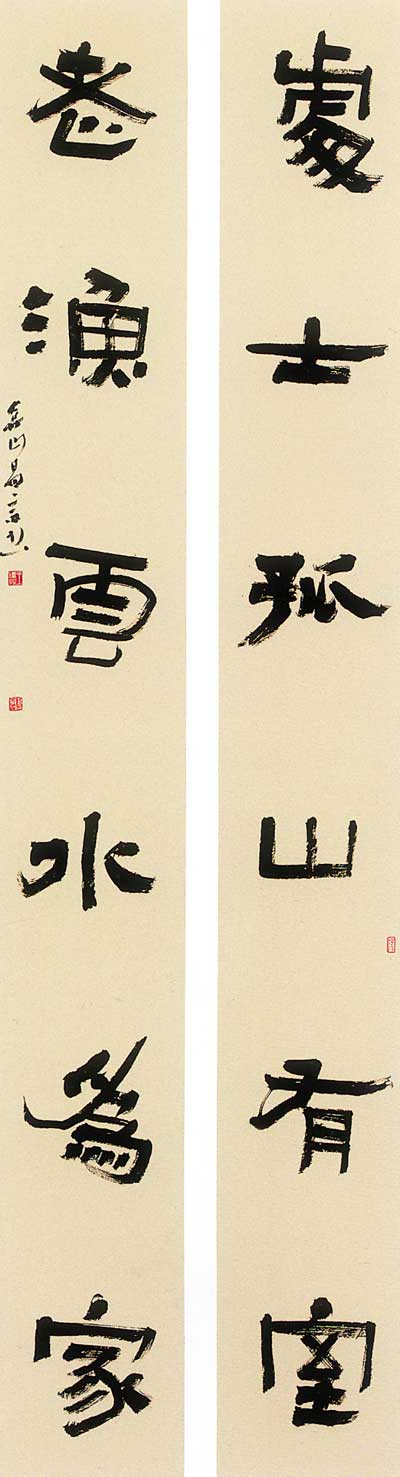 處士孤山有室
老漁雲水為家